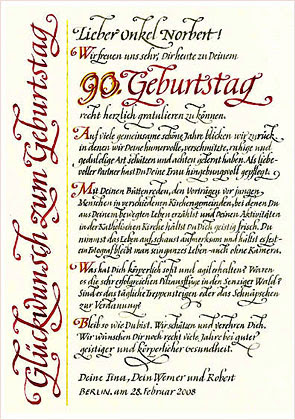 Glückwunsch zum Geburtstag
Lieber Onkel Norbert!
Wir freuen uns sehr, Dir heute zu Deinem
90. Geburtstag
recht herzlich gratulieren zu können.
Auf viele gemeinsame schöne Jahre blicken wir zurück,
in denen wir Deine humorvolle, verschmitzte, ruhige und
geduldige Art schätzen und achten gelernt haben. Als liebe-
voller Partner hast Du Deine Frau hingebungsvoll gepflegt.
Mit Deinen Büttenreden, den Vorträgen vor jungen
Menschen in verschiedenen Kirchengemeinden, bei denen Du
aus Deinem bewegten Leben erzählst und Deinen Aktivitäten
in der Katholischen Kirche hältst Du Dich geistig frisch. Du
nimmst das Leben auf, schaust aufmerksam und hältst es fest–
ein Fotograf bleibt man ein ganzes Leben – auch ohne Kamera.
Was hat Dich körperlich so fit und agil erhalten? Waren
es die sehr erfolgreichen Pilzausflüge in den Senziger Wald?
Sind es das tägliche Treppensteigen oder das Schnäpschen
zur Verdauung?
Bleib so wie Du bist. Wir schätzen und verehren Dich.
Wir wünschen Dir noch recht viele Jahre bei guter
geistiger und körperlicher Gesundheit.
Deine Dein Werner und Robert
BERLIN, am 28. Februar 2008